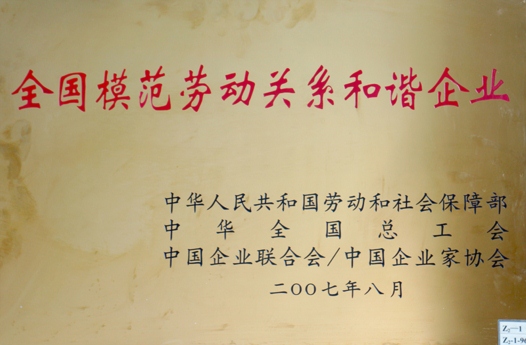 全国模范劳动关系和谐企业
中华人民共和国劳动和社会保障部
中华全国总工会
中国企业联合会/中国企业家协会
二〇〇七年八月
Z₁—1